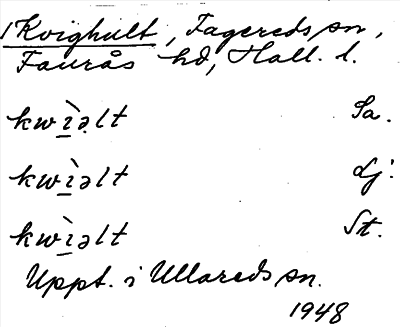 1 Kvighult, Fagereds sn,
Faurås hd, Hall. l.
kwìəlt Sa.
kwìəlt dj.
kwìəlt St.
Uppt. i Ullareds sn.
1948